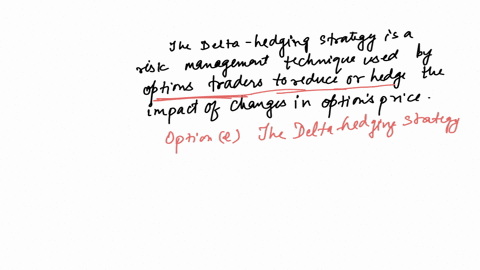 The Delta-hedging strategy is a
risk management technique used by
options traders to reduce or hedge the
impact of changes in option's price.
Option (e) The Delta-hedging strategy